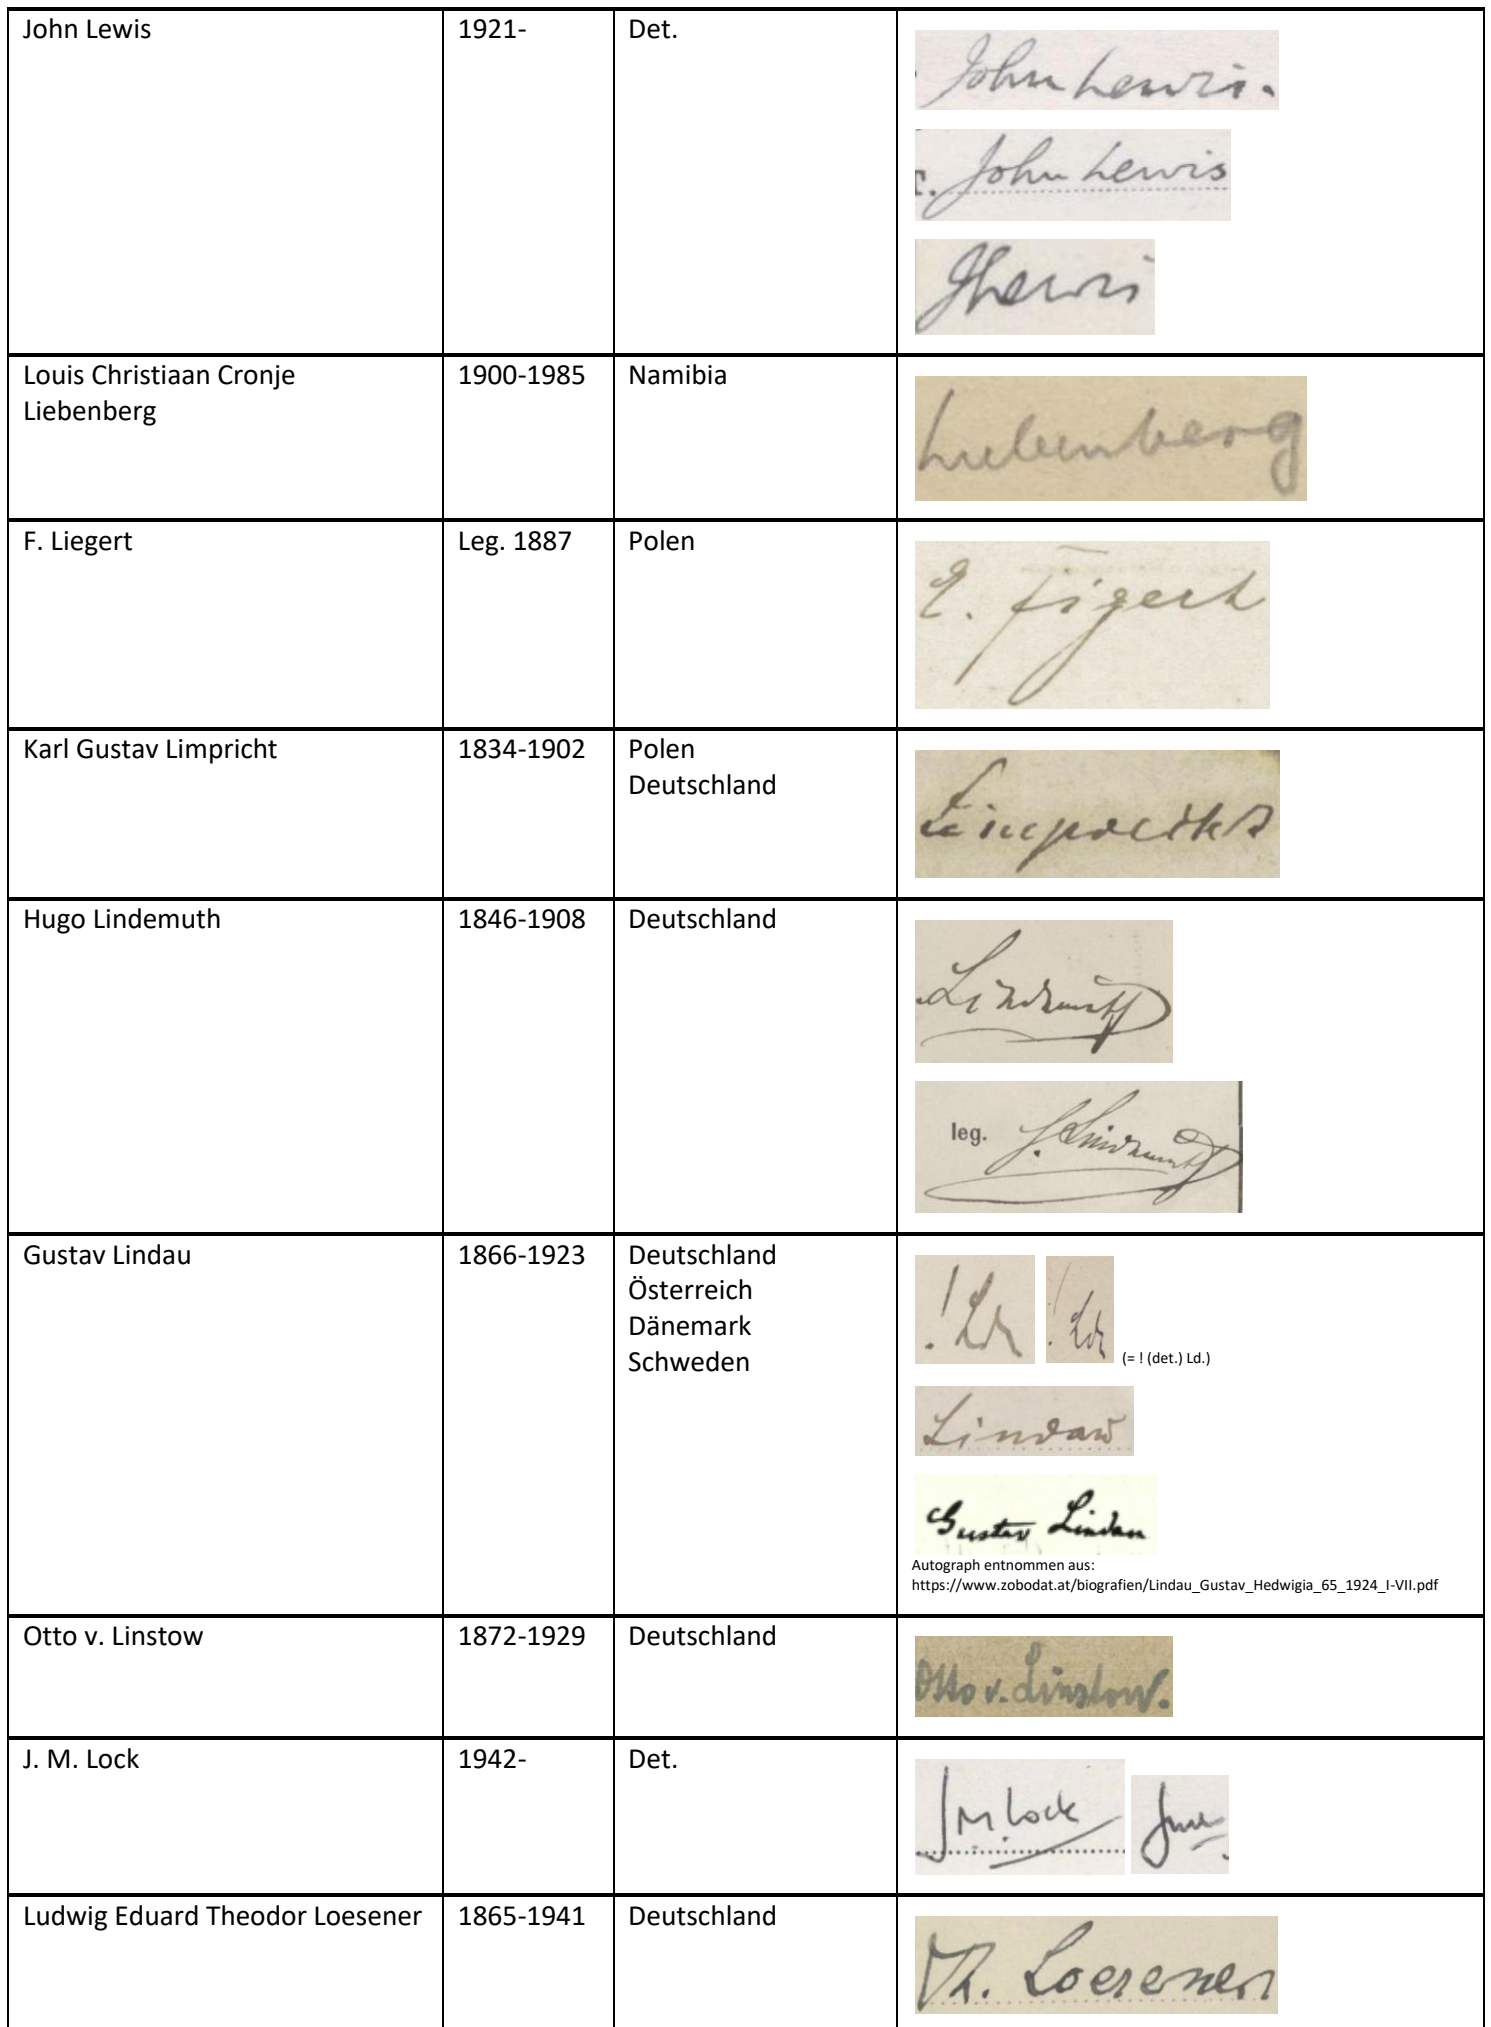 John Lewis 1921- Det.
John Lewis.
. John Lewis
JLewis
Louis Christiaan Cronje 1900-1985 Namibia
Liebenberg
Liebenberg
F. Liegert Leg. 1887 Polen
E. Figert
Karl Gustav Limpricht 1834-1902 Polen
Deutschland
Limpricht
Hugo Lindemuth 1846-1908 Deutschland
Lindemuth
leg. H. Lindemuth
Gustav Lindau 1866-1923 Deutschland
Österreich
Dänemark
Schweden
! Ld. ! Ld. (= ! (det.) Ld.)
Lindau
Gustav Lindau
Autograph entnommen aus:
https://www.zobodat.at/biografien/Lindau_Gustav_Hedwigia_65_1924_I-VII.pdf
Otto v. Linstow 1872-1929 Deutschland
Otto v. Linstow.
J. M. Lock 1942- Det.
J.M. Lock
Ludwig Eduard Theodor Loesener 1865-1941 Deutschland
Th. Loesener